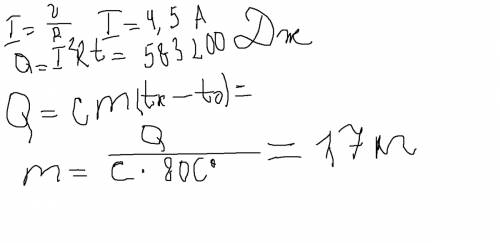 I = U/R I = 4,5 A
Q = I²Rt = 583200 Дж
Q = cm(tк - t0) =
m = Q / C · 80C° = 1,7 кг